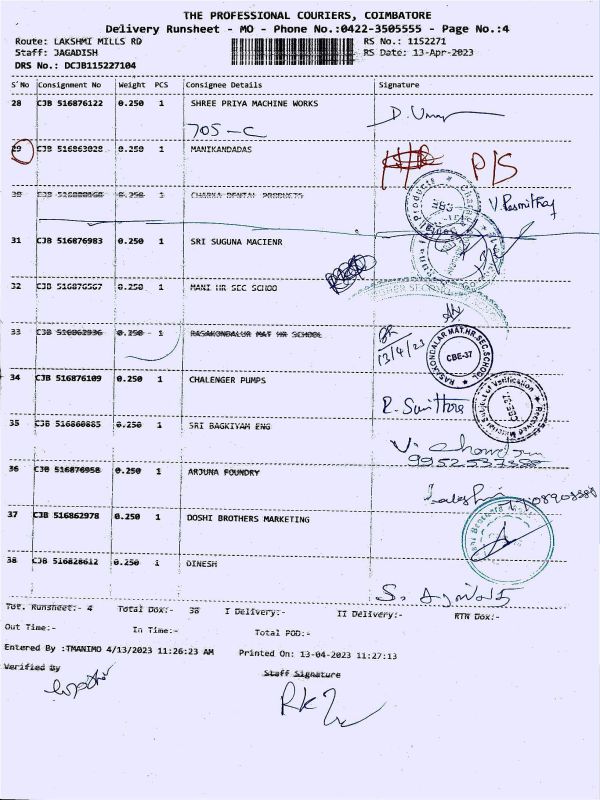 THE PROFESSIONAL COURIERS, COIMBATORE
Delivery Runsheet - MO - Phone No.:0422-3505555 - Page No.:4
Route: LAKSHMI MILLS RD RS No.: 1152271
Staff: JAGADISH RS Date: 13-Apr-2023
DRS No.: DCJB115227104
S'No Consignment No Weight PCS Consignee Details Signature
28 CJB 516876122 0.250 1 SHREE PRIYA MACHINE WORKS
705-C
29 CJB 516863028 0.250 1 MANIKANDADAS
P/S
30 0.250 1 CHARKA DENTAL PRODUCTS
31 CJB 516876983 0.250 1 SRI SUGUNA MACIENR
32 CJB 516876567 0.250 1 MANI HR SEC SCHOO
33 CJB 516862936 0.250 1 RASAKONDALUR MAT HR SCHOOL
13/4/23
RASAKONDALAR MAT.HR.SEC.SCHOOL
CBE-37
34 CJB 516876109 0.250 1 CHALENGER PUMPS
35 CJB 516860885 0.250 1 SRI BAGKIYAM ENG
36 CJB 516876958 0.250 1 ARJUNA FOUNDRY
37 CJB 516862978 0.250 1 DOSHI BROTHERS MARKETING
38 CJB 516828612 0.250 1 DINESH
Tot. Runsheet:- 4 Total Dox:- 38 I Delivery:- II Delivery:- RTN Dox:-
Out Time:- In Time:- Total POD:-
Entered By :TMANIMO 4/13/2023 11:26:23 AM Printed On: 13-04-2023 11:27:13
Verified By Staff Signature